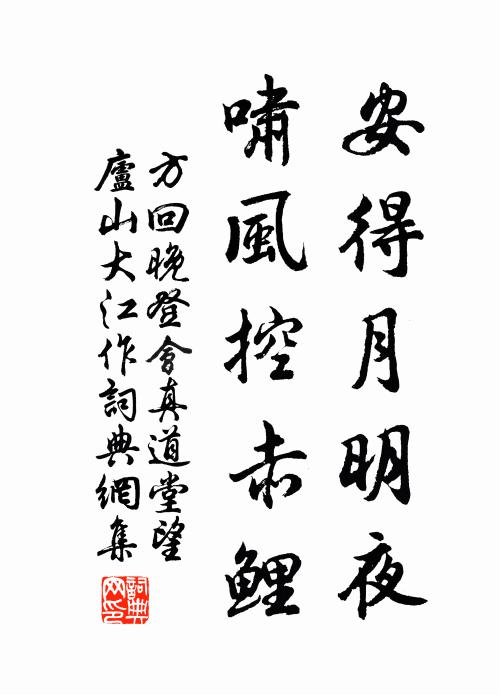 安得月明夜
嘯風控赤鯉
方回晚登會真道堂望
廬山大江作詞典網集
詞典網印